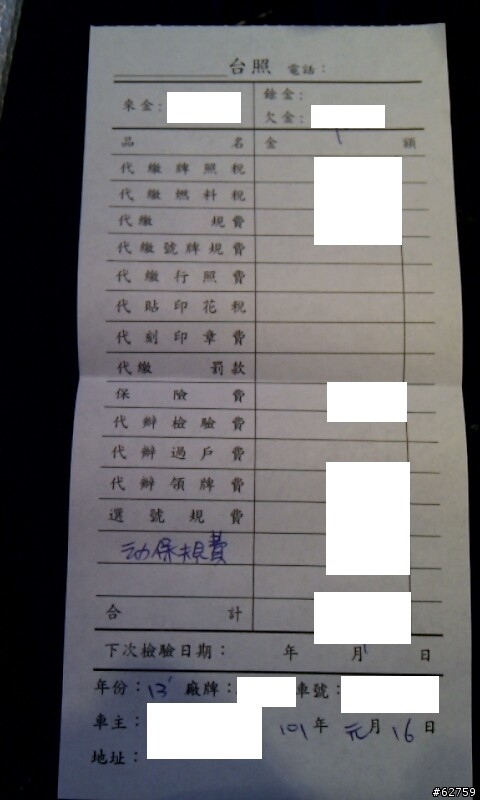 台照 電話：
來金： 餘金：
欠金：
品名 金額
代繳牌照稅
代繳燃料稅
代繳 規費
代繳號牌規費
代繳行照費
代貼印花稅
代刻印章費
代繳 罰款
保險費
代辦檢驗費
代辦過戶費
代辦領牌費
選號規費
动保規費
合計
下次檢驗日期： 年 月 日
年份：13' 廠牌： 車號：
車主： 101年 元月16日
地址：
#62759